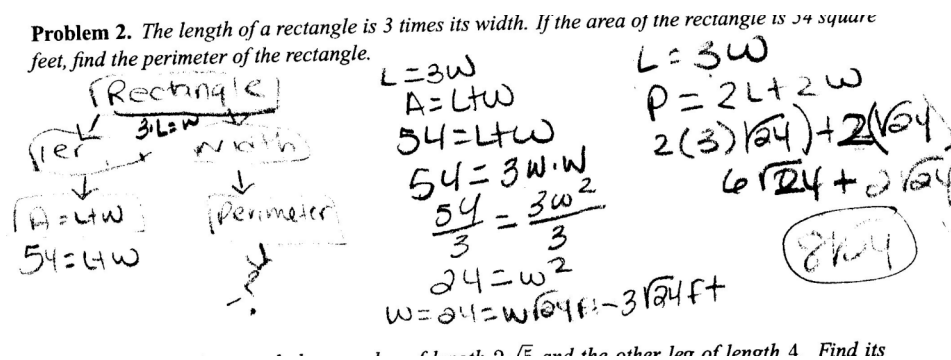 Problem 2. The length of a rectangle is 3 times its width. If the area of the rectangle is 54 square
feet, find the perimeter of the rectangle.
Rectangle
3·L=W
Width
A=L+W
54=L+W
Perimeter
?
L=3W
A=L+W
54=L+W
54=3W·W
54/3 = 3w²/3
24=w²
W=24=W√24ft-3√24ft
L=3W
P=2L+2W
2(3)√24)+2(√24)
6√24+2√24
8√24
and the other leg of length 4. Find its